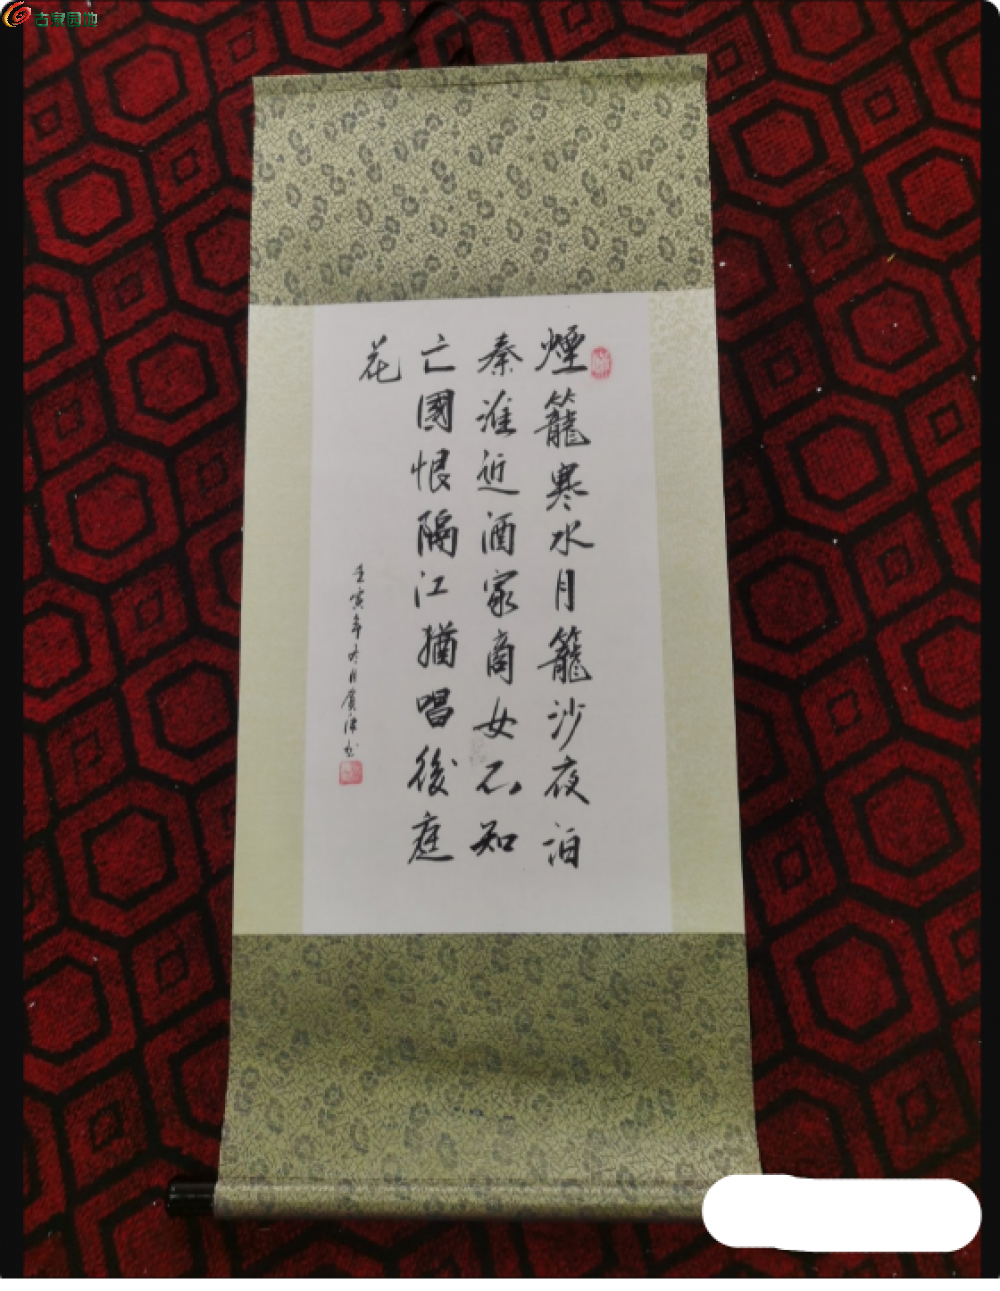 古泉园地
煙籠寒水月籠沙夜泊
秦淮近酒家商女不知
亡國恨隔江猶唱後庭
花
壬寅年冬月